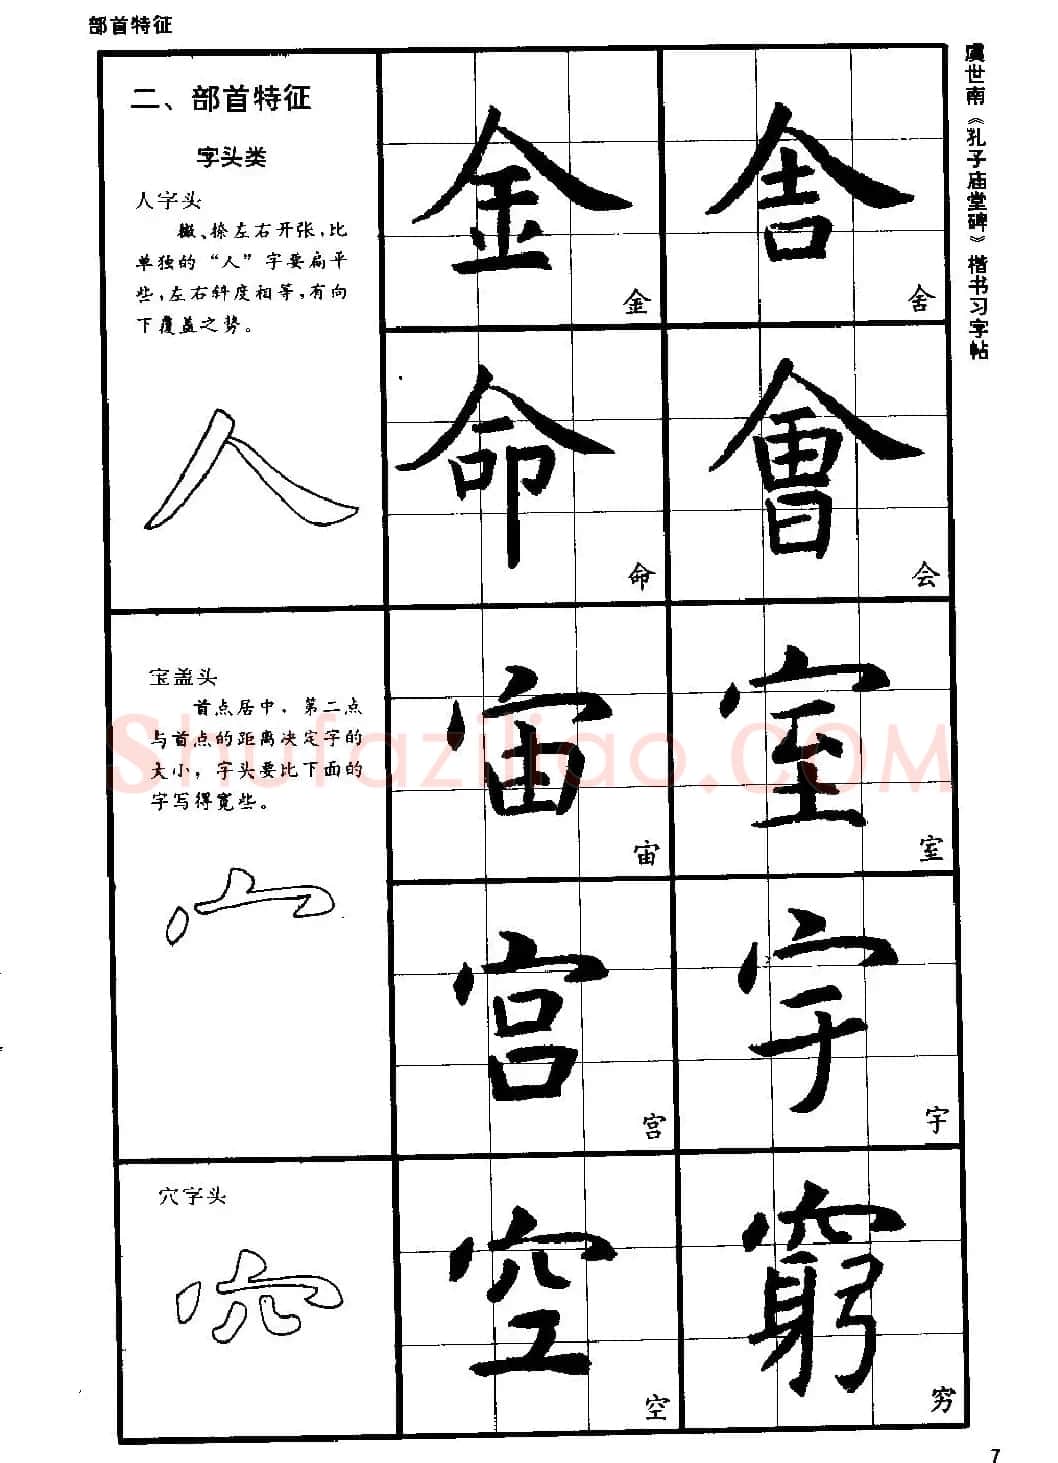 部首特征
虞世南《孔子庙堂碑》楷书习字帖
二、部首特征
字头类
人字头
撇、捺左右开张,比
单独的“人”字要扁平
些,左右斜度相等,有向
下覆盖之势。
人
金
金
舍
舍
命
命
會
会
宝盖头
首点居中，第二点
与首点的距离决定字的
大小，字头要比下面的
字写得宽些。
宀
宙
宙
室
室
宫
宫
宇
宇
穴字头
穴
空
空
窮
穷
Shufaziliao.COM
7